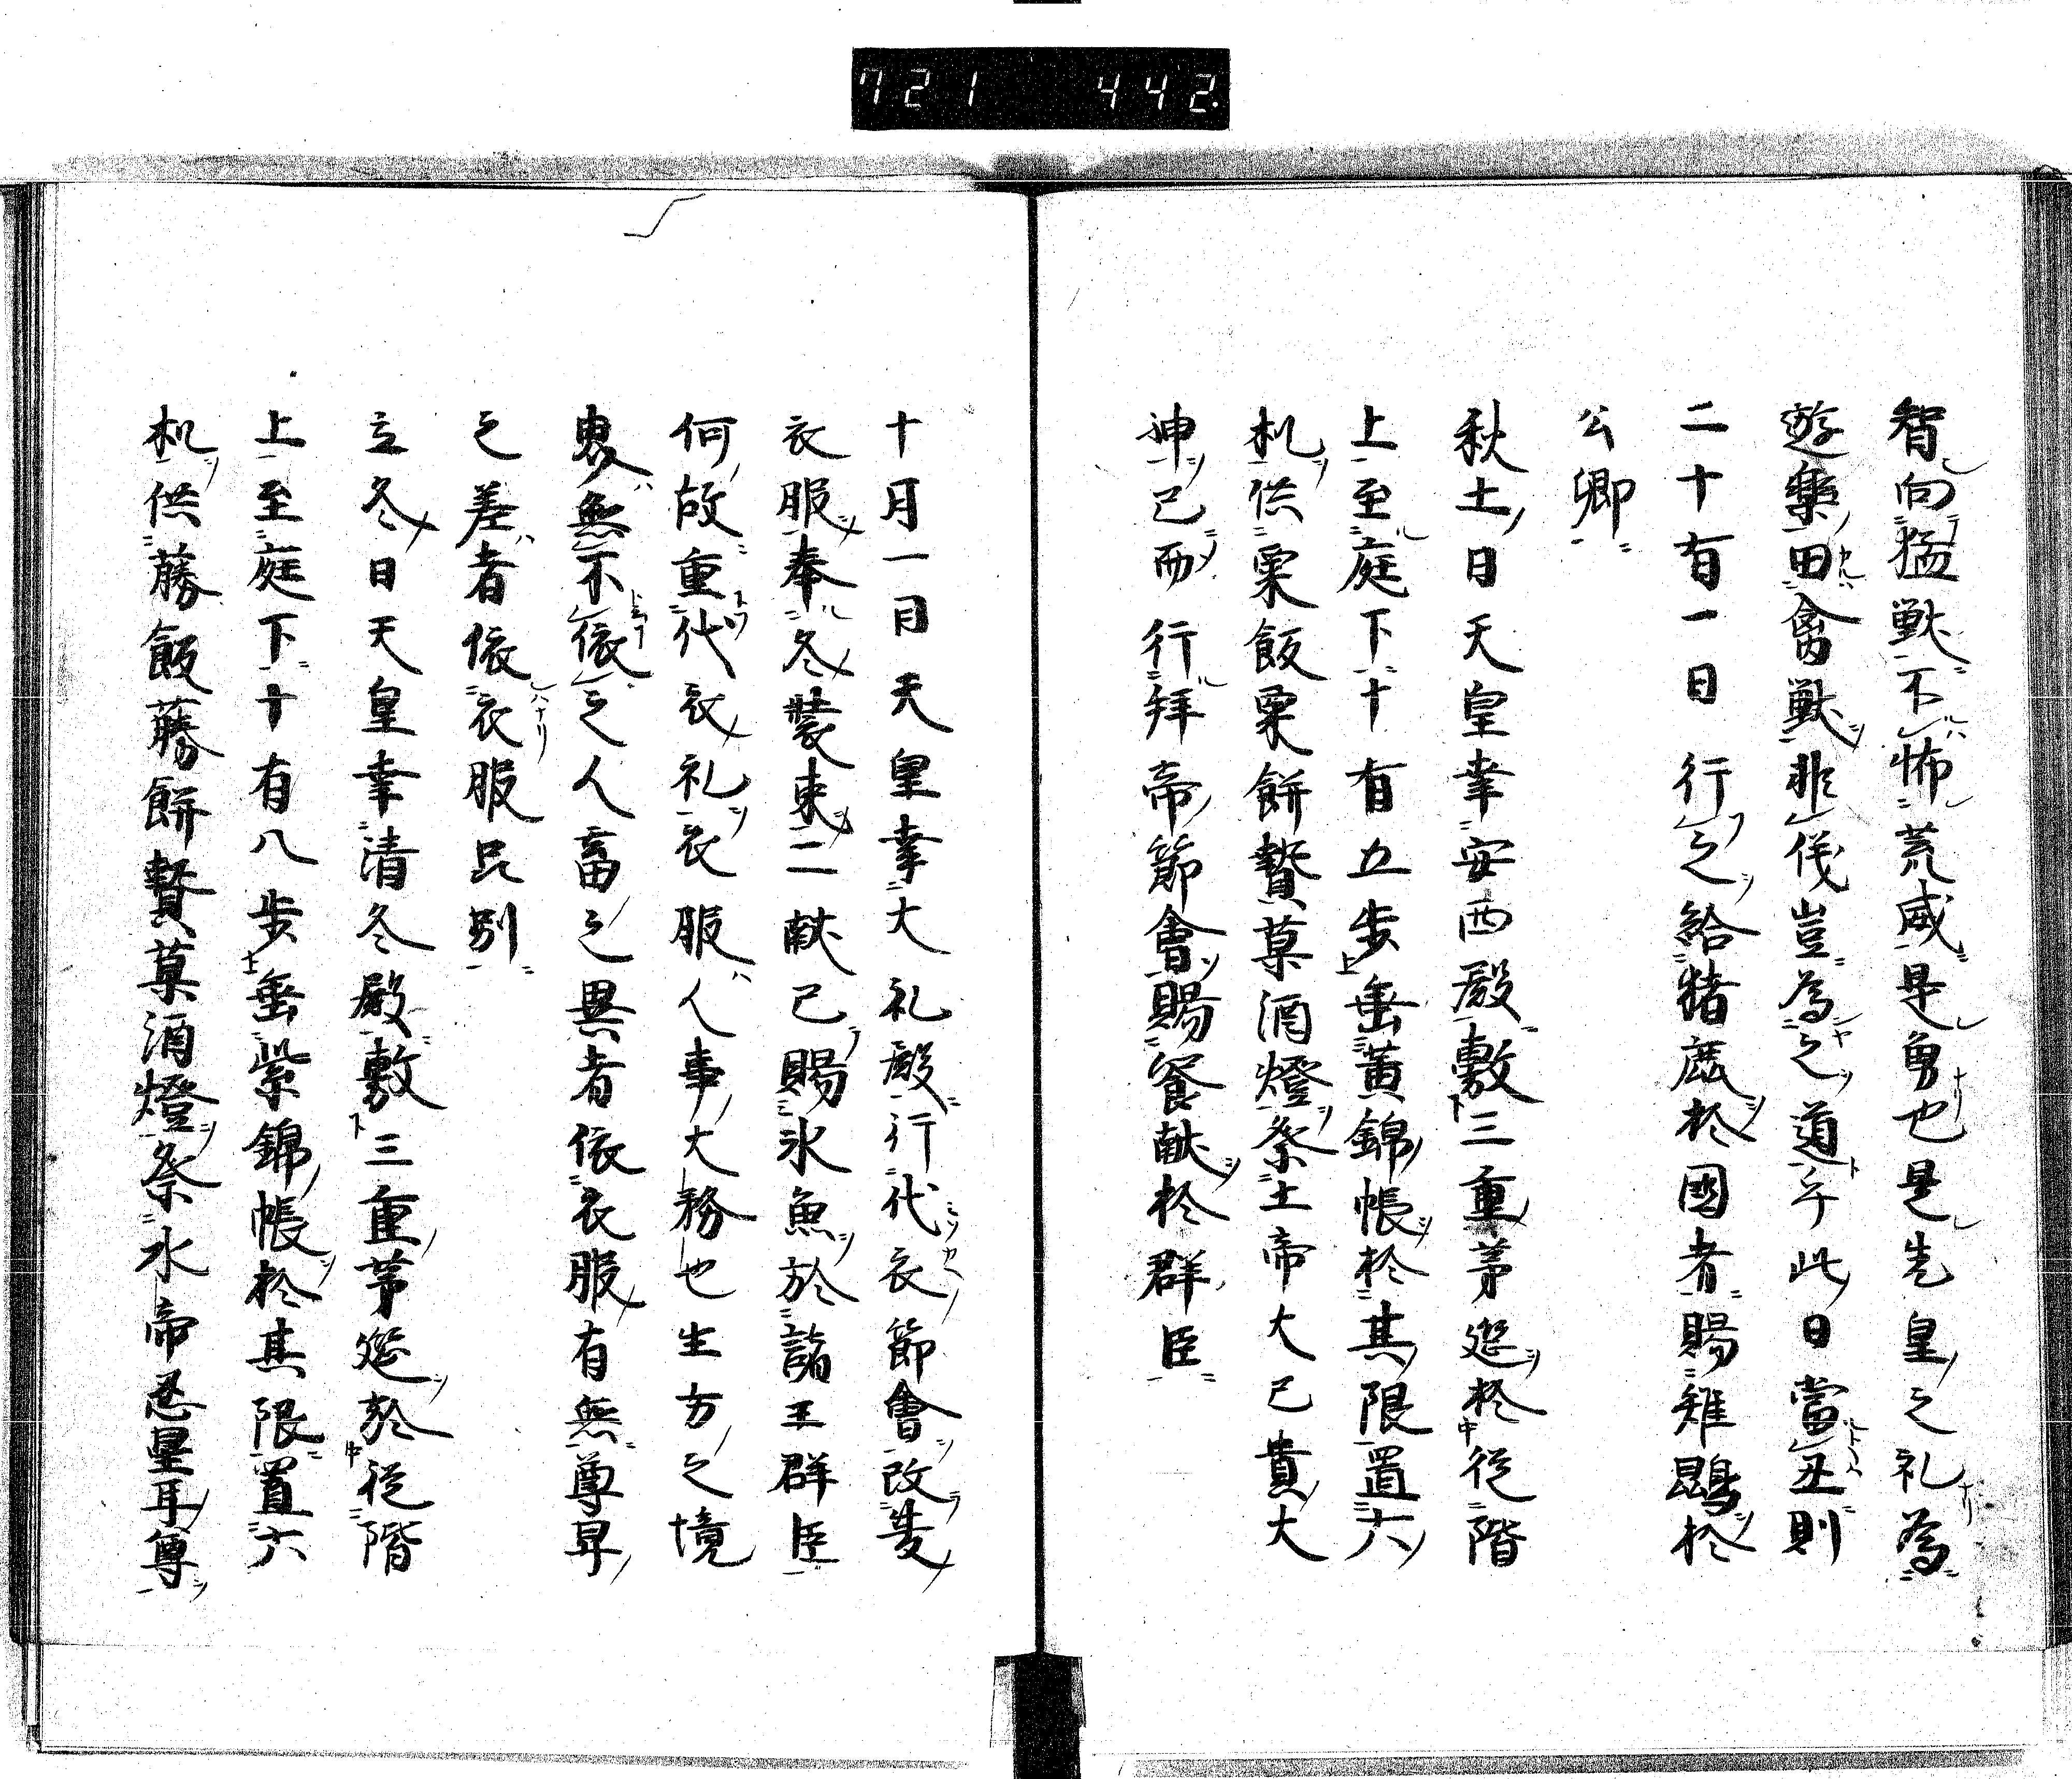 721 442.
智向猛獣不怖荒威是勇也是先皇之礼為
遊樂田禽獣非伐豈為之道乎此日當丑則
二十有一日行之給猪鹿於國者賜雉鵾於
公卿
秋土日天皇幸安西殿敷三重茅筵於從階
上至庭下十有五步垂黄錦帳於其限置六
机供栗飯栗餅贄菓酒燈祭土帝大己貴大
神已而行拜帝節會賜餐献於群臣
十月一日天皇幸大礼殿行代衣節會改隻
衣服奉冬裝束二献已賜氷魚於諸王群臣
何故重代衣礼衣服人事大務也生方之境
鬼無不依之人畜之異者依衣服有無尊卑
之差者依衣服品別
立冬日天皇幸清冬殿敷三重茅筵於從階
上至庭下十有八步垂紫錦帳於其限置六
机供藤飯藤餅贄菓酒燈祭水帝忍星耳尊